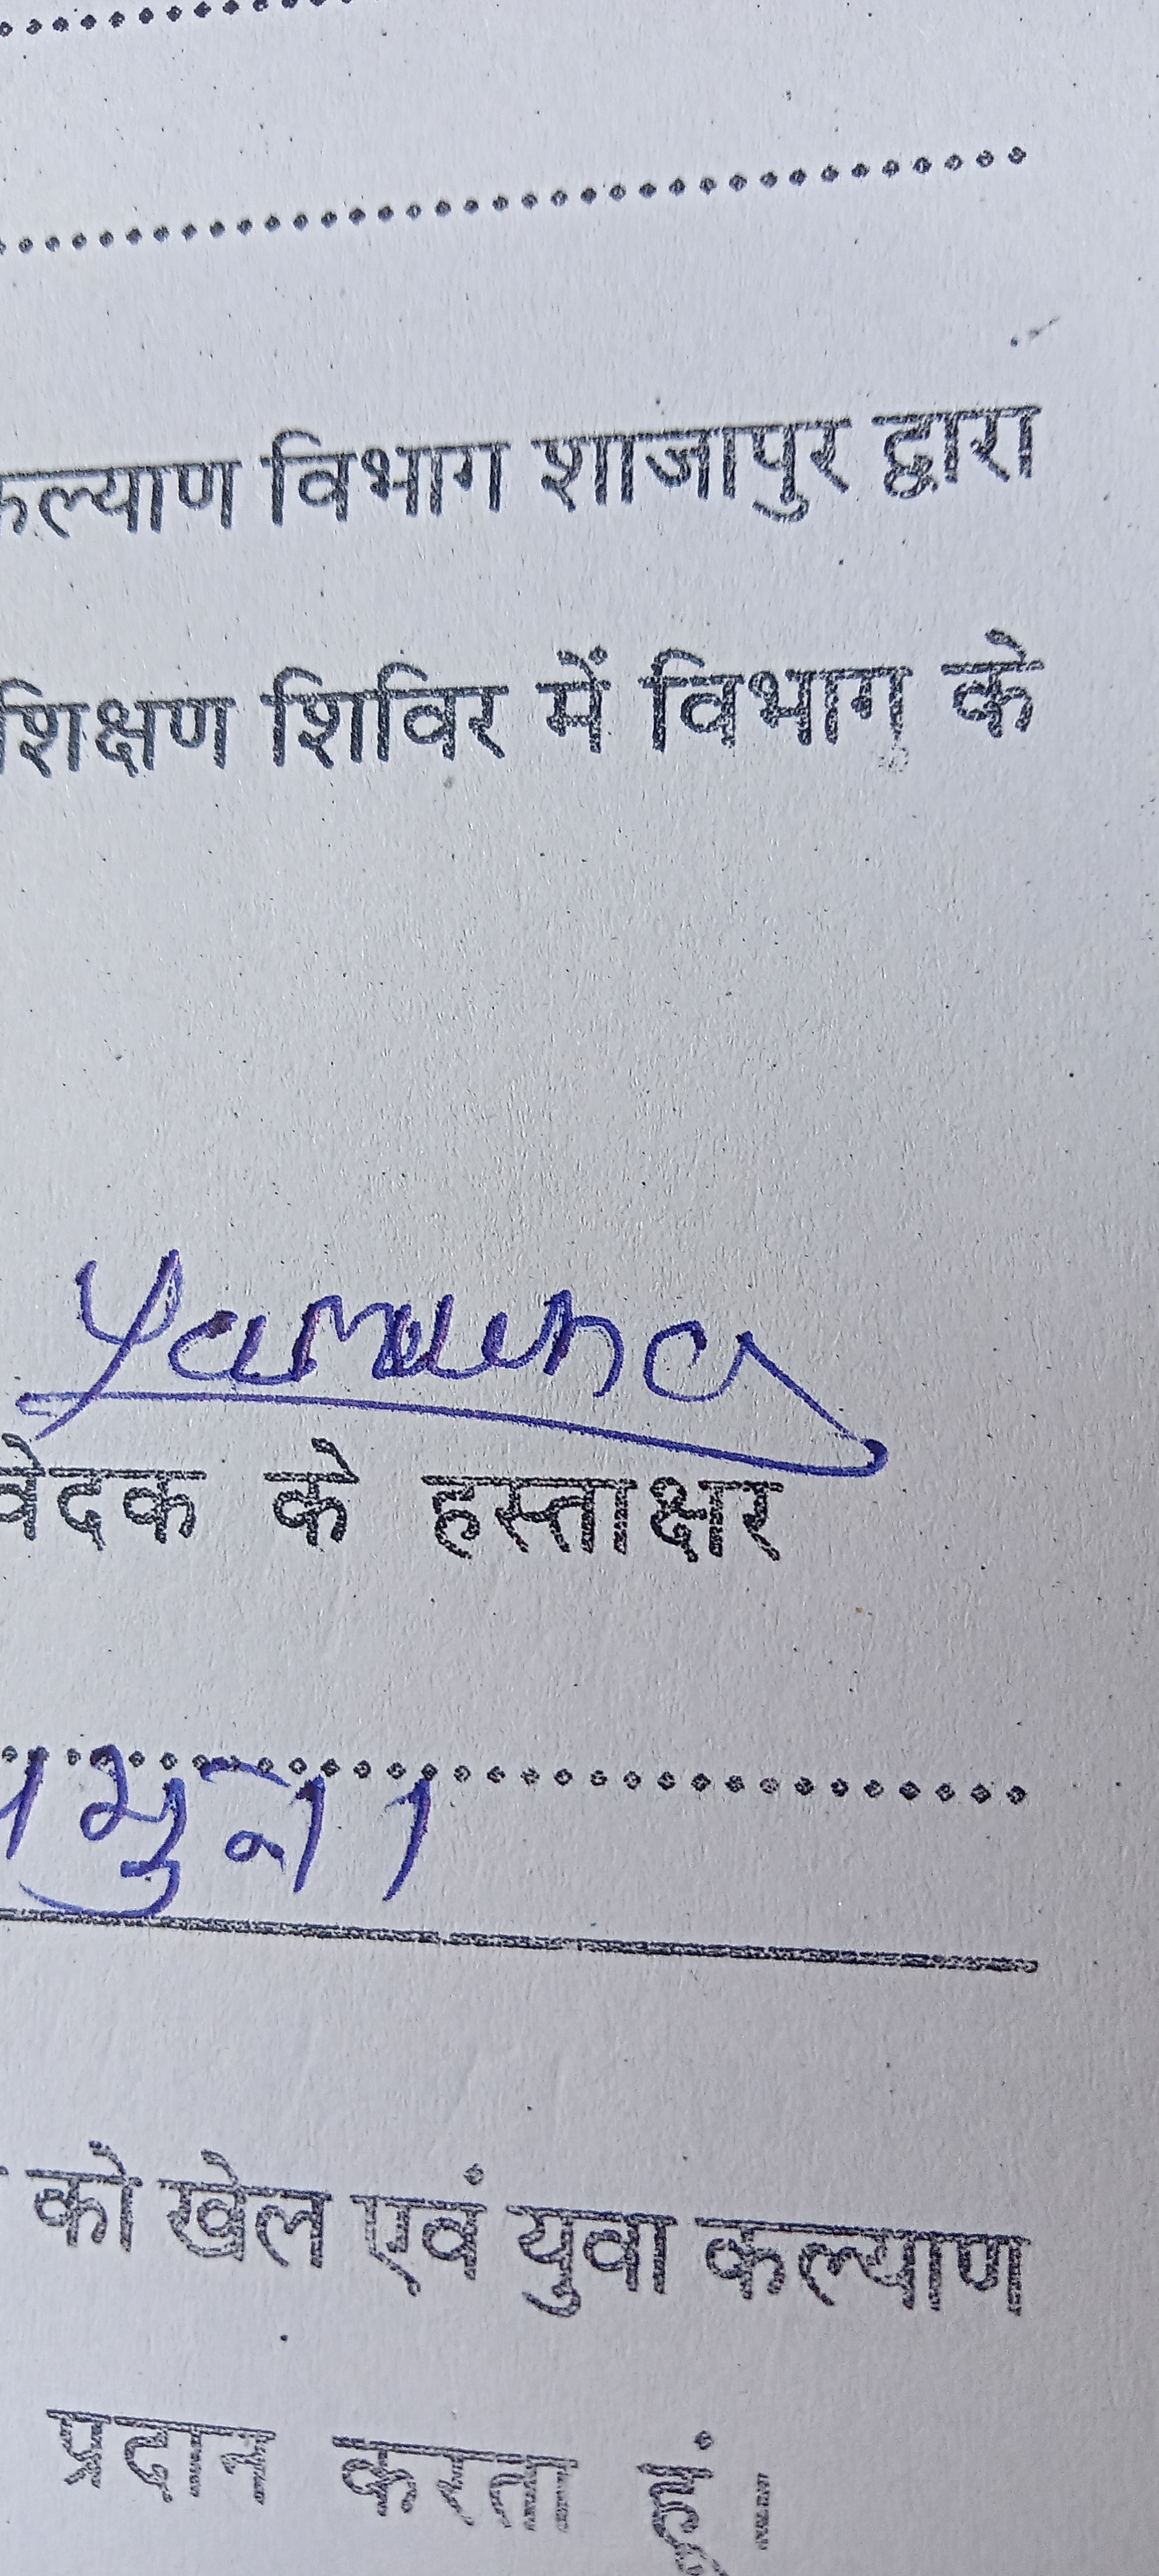 कल्याण विभाग शाजापुर द्वारा
शिक्षण शिविर में विभाग के
वेदक के हस्ताक्षर
को खेल एवं युवा कल्याण
प्रदान करता हूं।